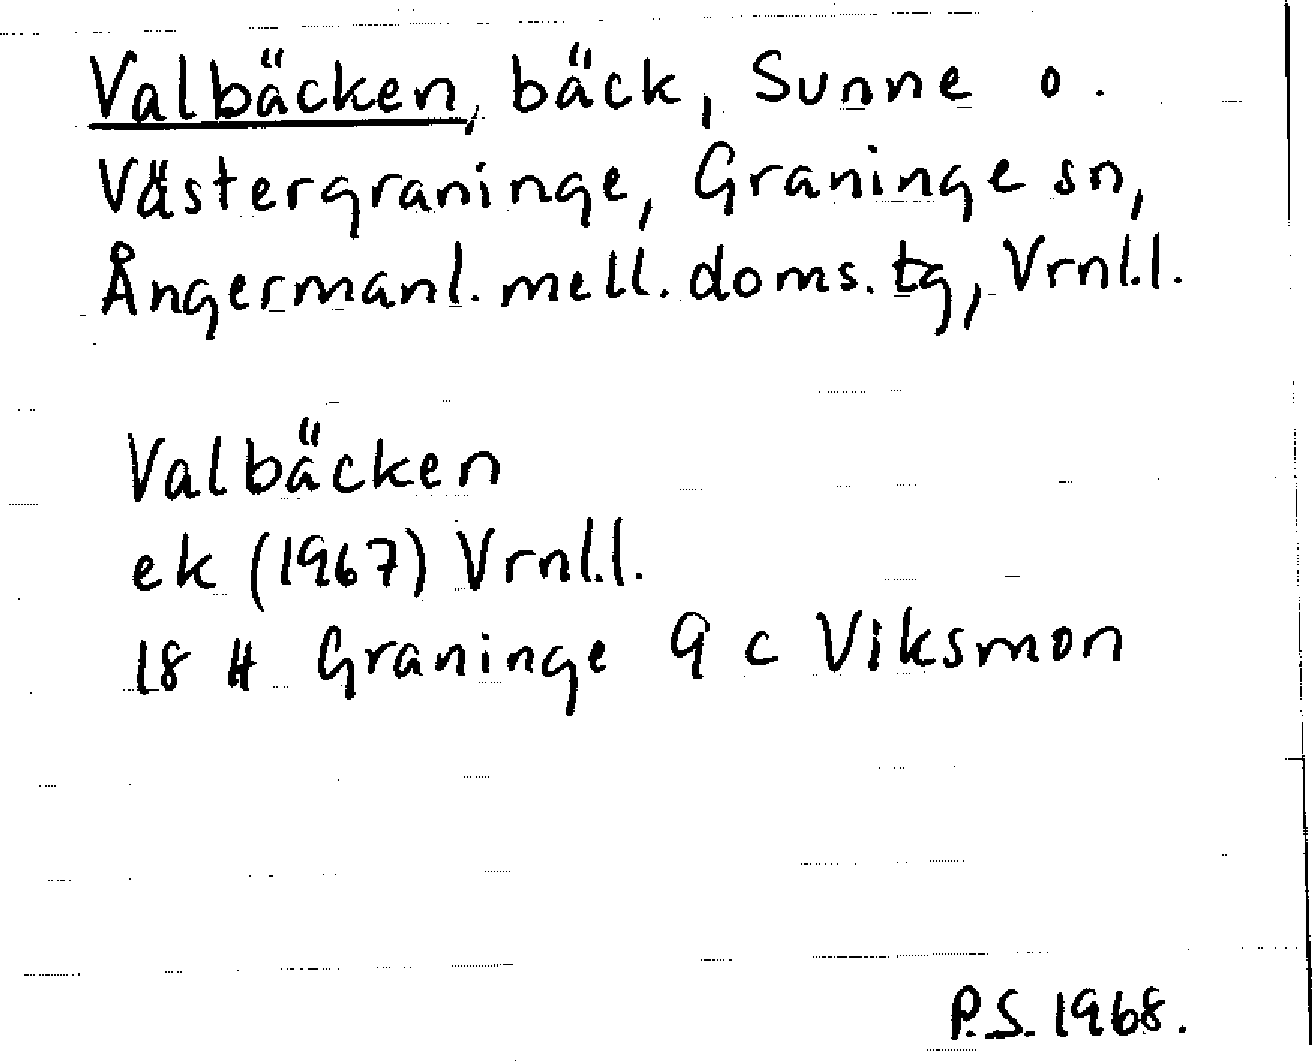 Valbäcken, bäck, Sunne o.
Västergraninge, Graninge sn,
Ångermanl. mell. doms. tg, Vrnl.l.
Valbäcken
ek (1967) Vrnl.l.
18 H Graninge 9 c Viksmon
P.S. 1968.